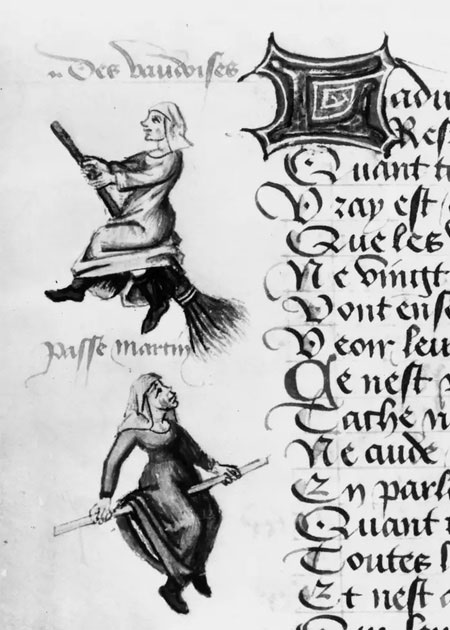 Des vaudoises
passe martin
Quant t
Vray est
Que les
Ne vingt
Vont ens
Veoir leur
Ce nest
Tache n
Ne aude
En parl
Quant
Toutes l
Et nest